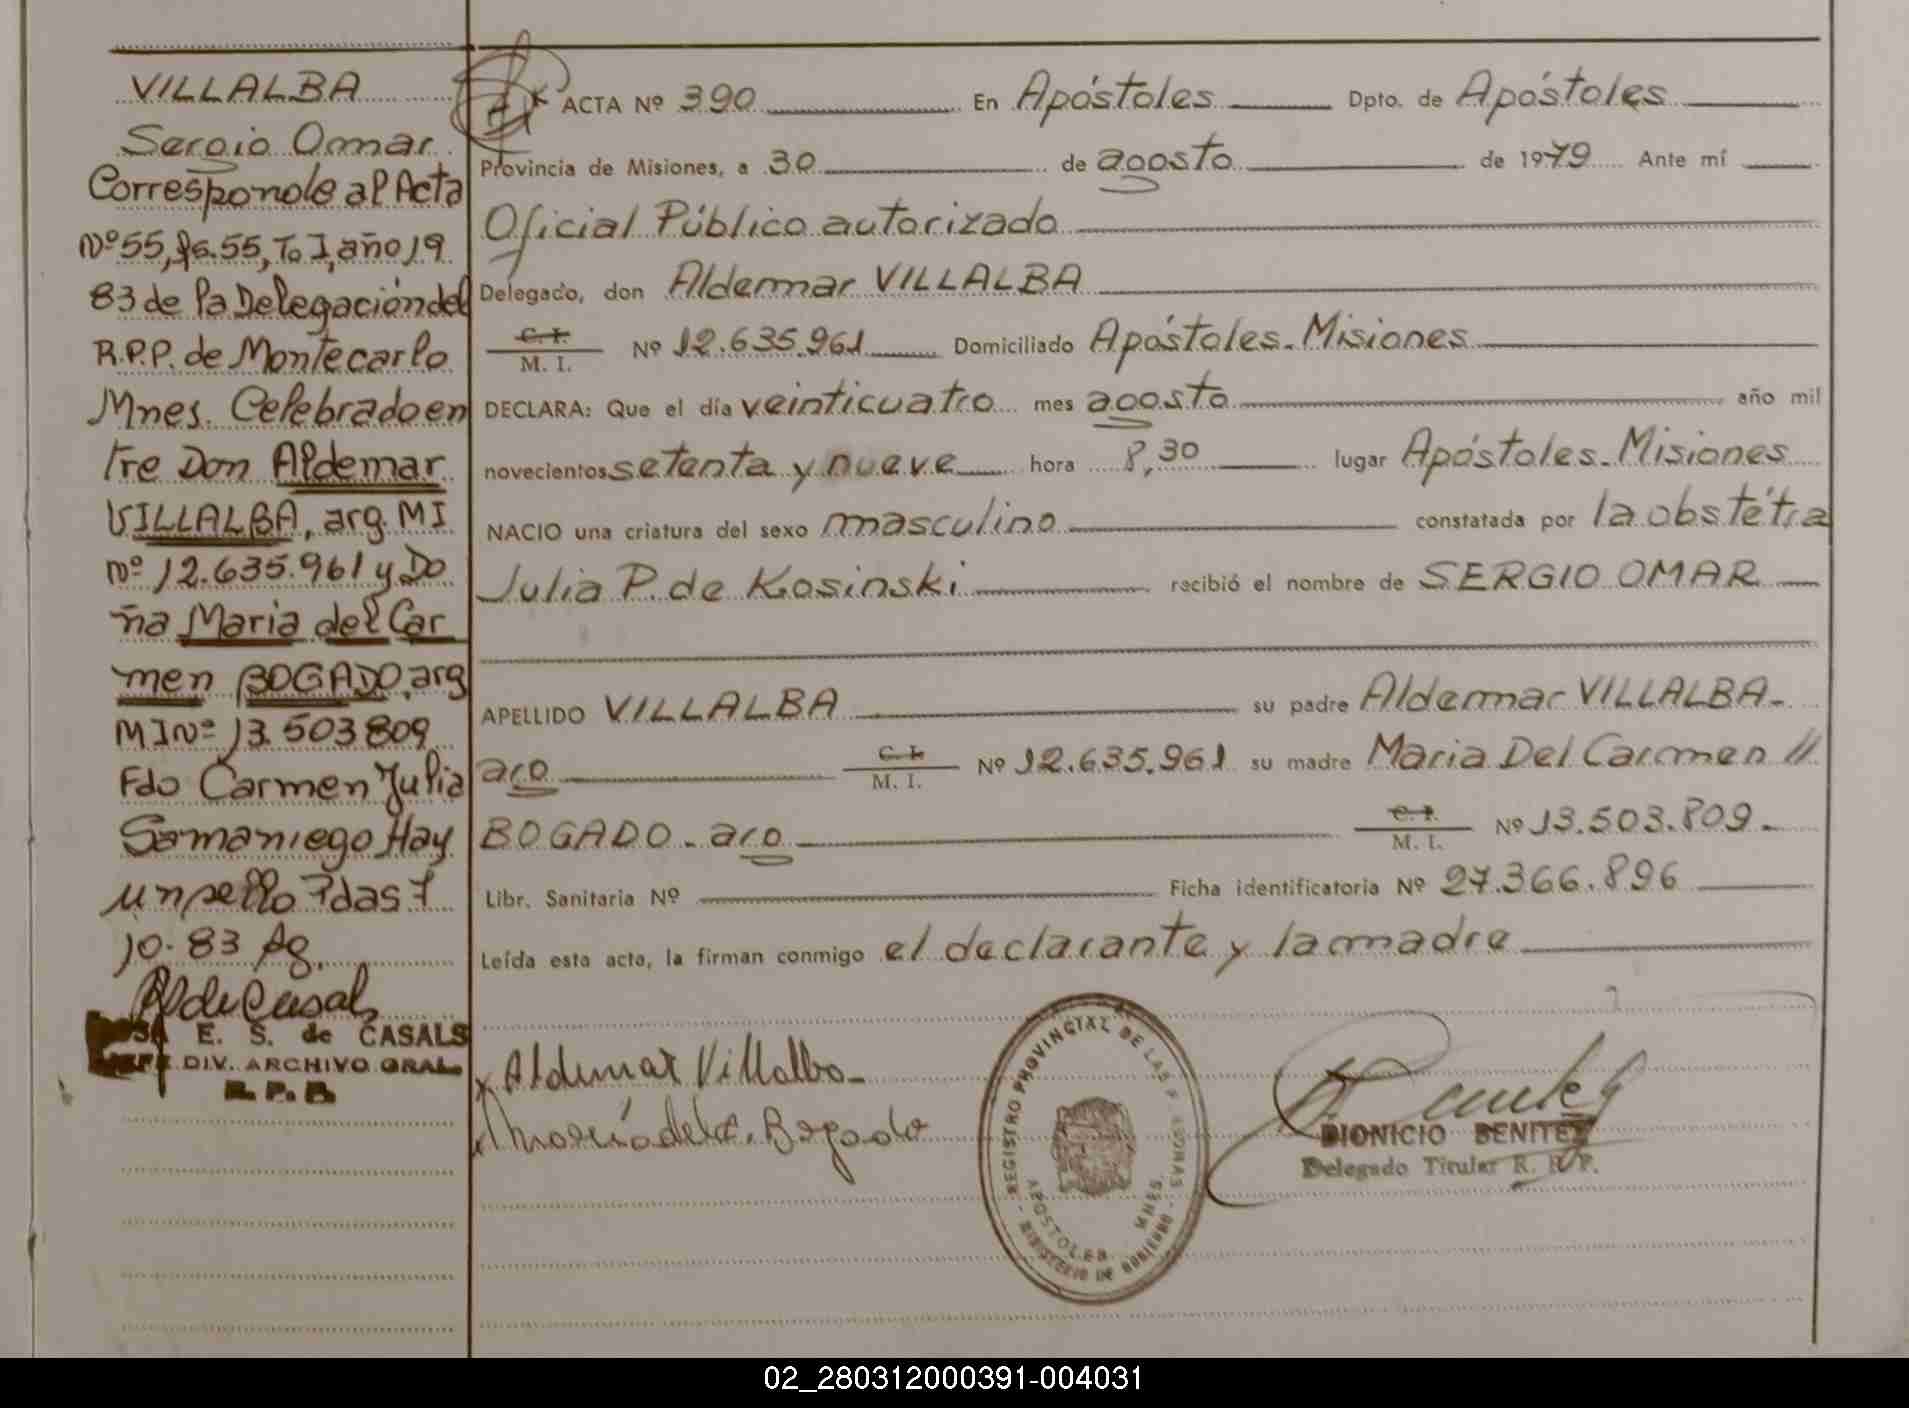 VILLALBA
Sergio Omar
Corresponde al Acta
Nº 55, fs. 55, To I, año 19
83 de la Delegación del
R.P.P. de Montecarlo
Mnes. Celebrado en
tre Don Aldemar
VILLALBA, arg. MI
Nº 12.635.961 y Do
ña Maria del Car
men BOGADO, arg
MI Nº 13.503809
Fdo Carmen Julia
Samaniego Hay
un sello Pdas 7
10. 83 Ag.
E. S. de CASALS
JEFE DIV. ARCHIVO GRAL.
R. P. P.
ACTA Nº 390 En Apóstoles Dpto. de Apóstoles
Provincia de Misiones, a 30 de agosto de 1979 Ante mí
Oficial Público autorizado
Delegado, don Aldemar VILLALBA
C. I.
M. I. Nº 12.635.961 Domiciliado Apóstoles. Misiones
DECLARA: Que el día veinticuatro mes agosto año mil
novecientos setenta y nueve hora 8,30 lugar Apóstoles. Misiones
NACIO una criatura del sexo masculino constatada por la obstétra
Julia P. de Kosinski recibió el nombre de SERGIO OMAR
APELLIDO VILLALBA su padre Aldemar VILLALBA-
arg C. I.
M. I. Nº 12.635.961 su madre Maria Del Carmen //
BOGADO. arg C. I.
M. I. Nº 13.503.809.
Libr. Sanitaria Nº Ficha identificatoria Nº 27.366.896
Leída esta acta, la firman conmigo el declarante y la madre
Aldemar Villalba
María del C. Bogado
REGISTRO PROVINCIAL DE LAS PERSONAS
APOSTOLES MNES.
MINISTERIO DE GOBIERNO
DIONICIO BENITEZ
Delegado Titular R. P. P.
02_280312000391-004031